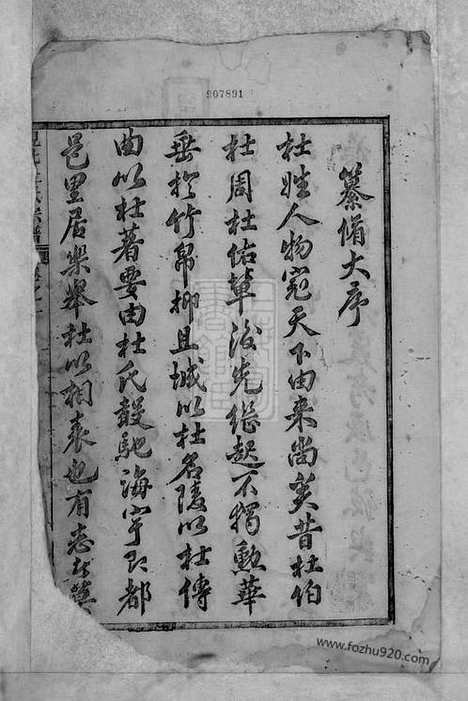 907891
纂脩大序
杜姓人物冠天下由來尚矣昔杜伯
杜周杜佑輩後先繼起不獨勲華
垂於竹帛抑且城以杜名陵以杜傳
曲以杜著要由杜氏聲馳海宇即都
邑里居樂舉杜以相表也有志於
www.fozhu920.com